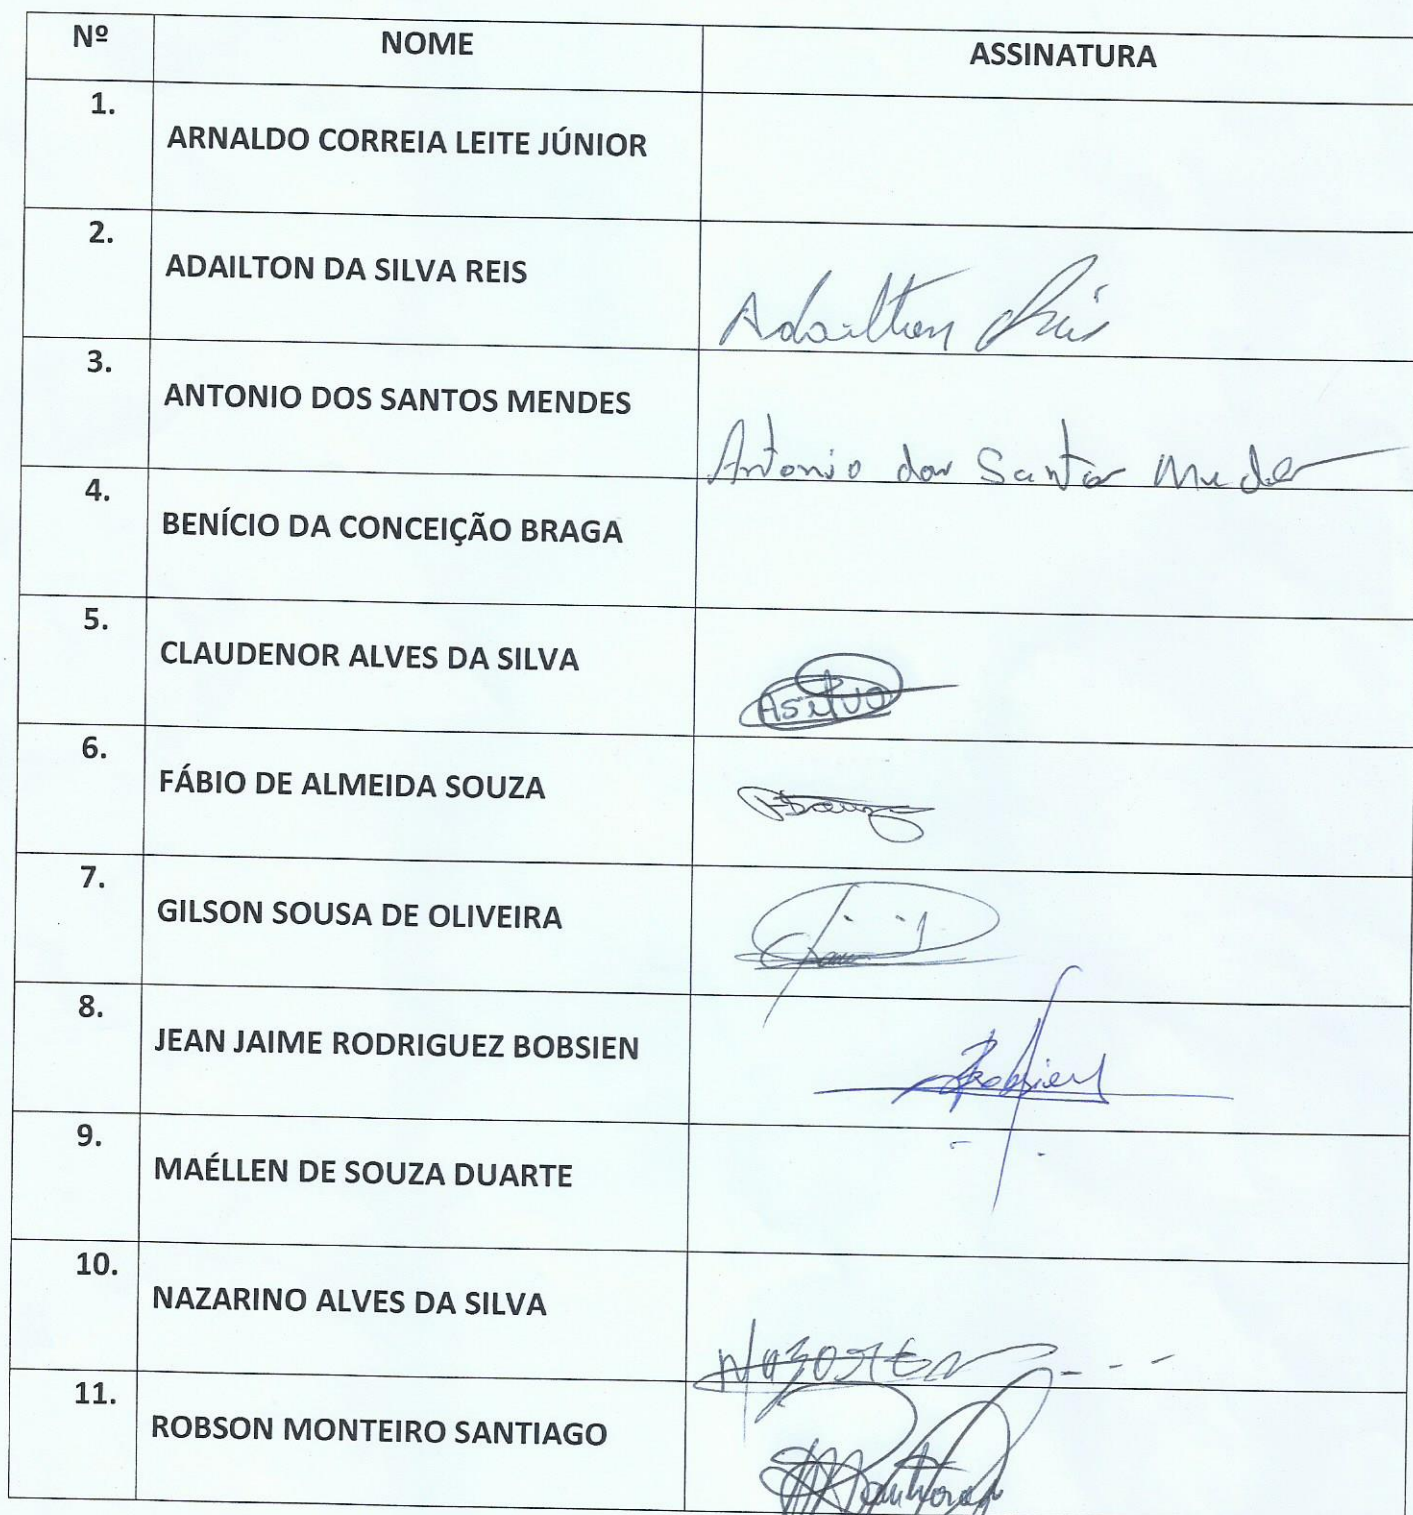 Nº NOME ASSINATURA
1. ARNALDO CORREIA LEITE JÚNIOR
2. ADAILTON DA SILVA REIS
Adailton Reis
3. ANTONIO DOS SANTOS MENDES
Antonio dos Santos Mendes
4. BENÍCIO DA CONCEIÇÃO BRAGA
5. CLAUDENOR ALVES DA SILVA
ASilva
6. FÁBIO DE ALMEIDA SOUZA
7. GILSON SOUSA DE OLIVEIRA
8. JEAN JAIME RODRIGUEZ BOBSIEN
Bobsien
9. MAÉLLEN DE SOUZA DUARTE
10. NAZARINO ALVES DA SILVA
11. ROBSON MONTEIRO SANTIAGO